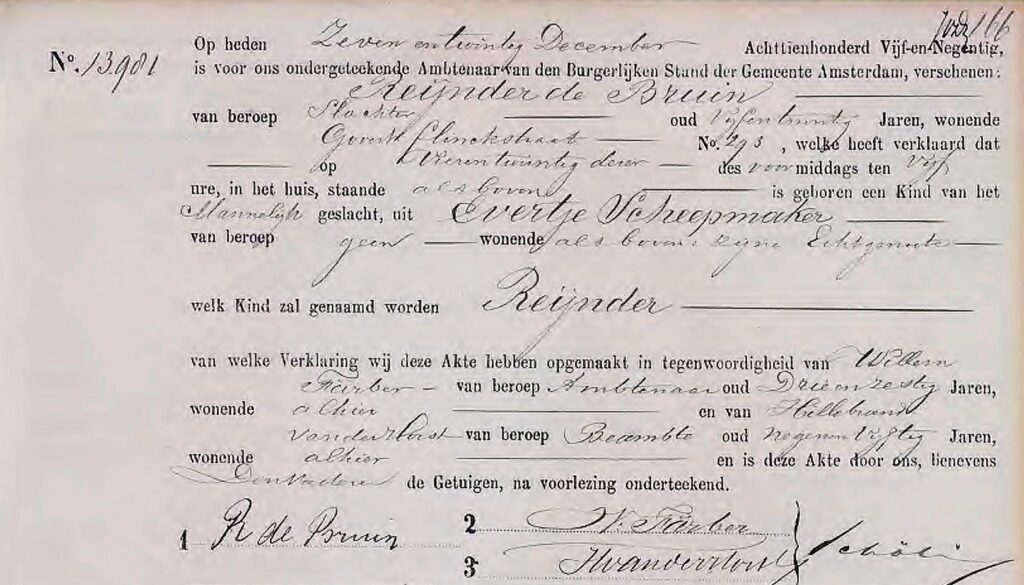 166
Op heden Zeven en twintig December Achttienhonderd Vijf-en-Negentig,
No. 13.981 is voor ons ondergeteekende Ambtenaar van den Burgerlijken Stand der Gemeente Amsterdam, verschenen:
Reijnder de Bruin
van beroep Slachter oud Vijfentwintig Jaren, wonende
Govert Flinckstraat No. 293, welke heeft verklaard dat
op Vierentwintig dezer des voormiddags ten Vijf
ure, in het huis, staande als boven is geboren een Kind van het
Mannelijk geslacht, uit Evertje Scheepmaker
van beroep geen wonende als boven zijne Echtgenoote
welk Kind zal genaamd worden Reijnder
van welke Verklaring wij deze Akte hebben opgemaakt in tegenwoordigheid van Willem
Färber van beroep Ambtenaar oud Drie en zestig Jaren,
wonende alhier en van Hillebrand
van der Horst van beroep Beambte oud negenen Vijftig Jaren,
wonende alhier en is deze Akte door ons, benevens
Den Vader de Getuigen, na voorlezing onderteekend.
1 R de Bruin 2 W. Färber
3 HvanderHorst